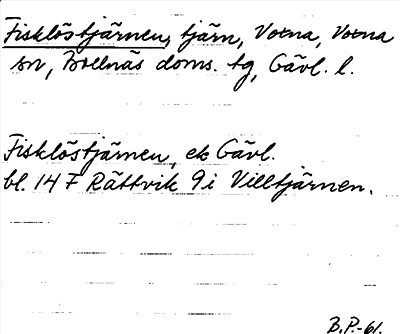 Fisklöstjärnen, tjärn, Voxna, Voxna
sn, Bollnäs doms. tg, Gävl. l.
Fisklöstjärnen, ek Gävl.
bl. 14 F Rättvik 9 i Villtjärnen.
B.P.-61.